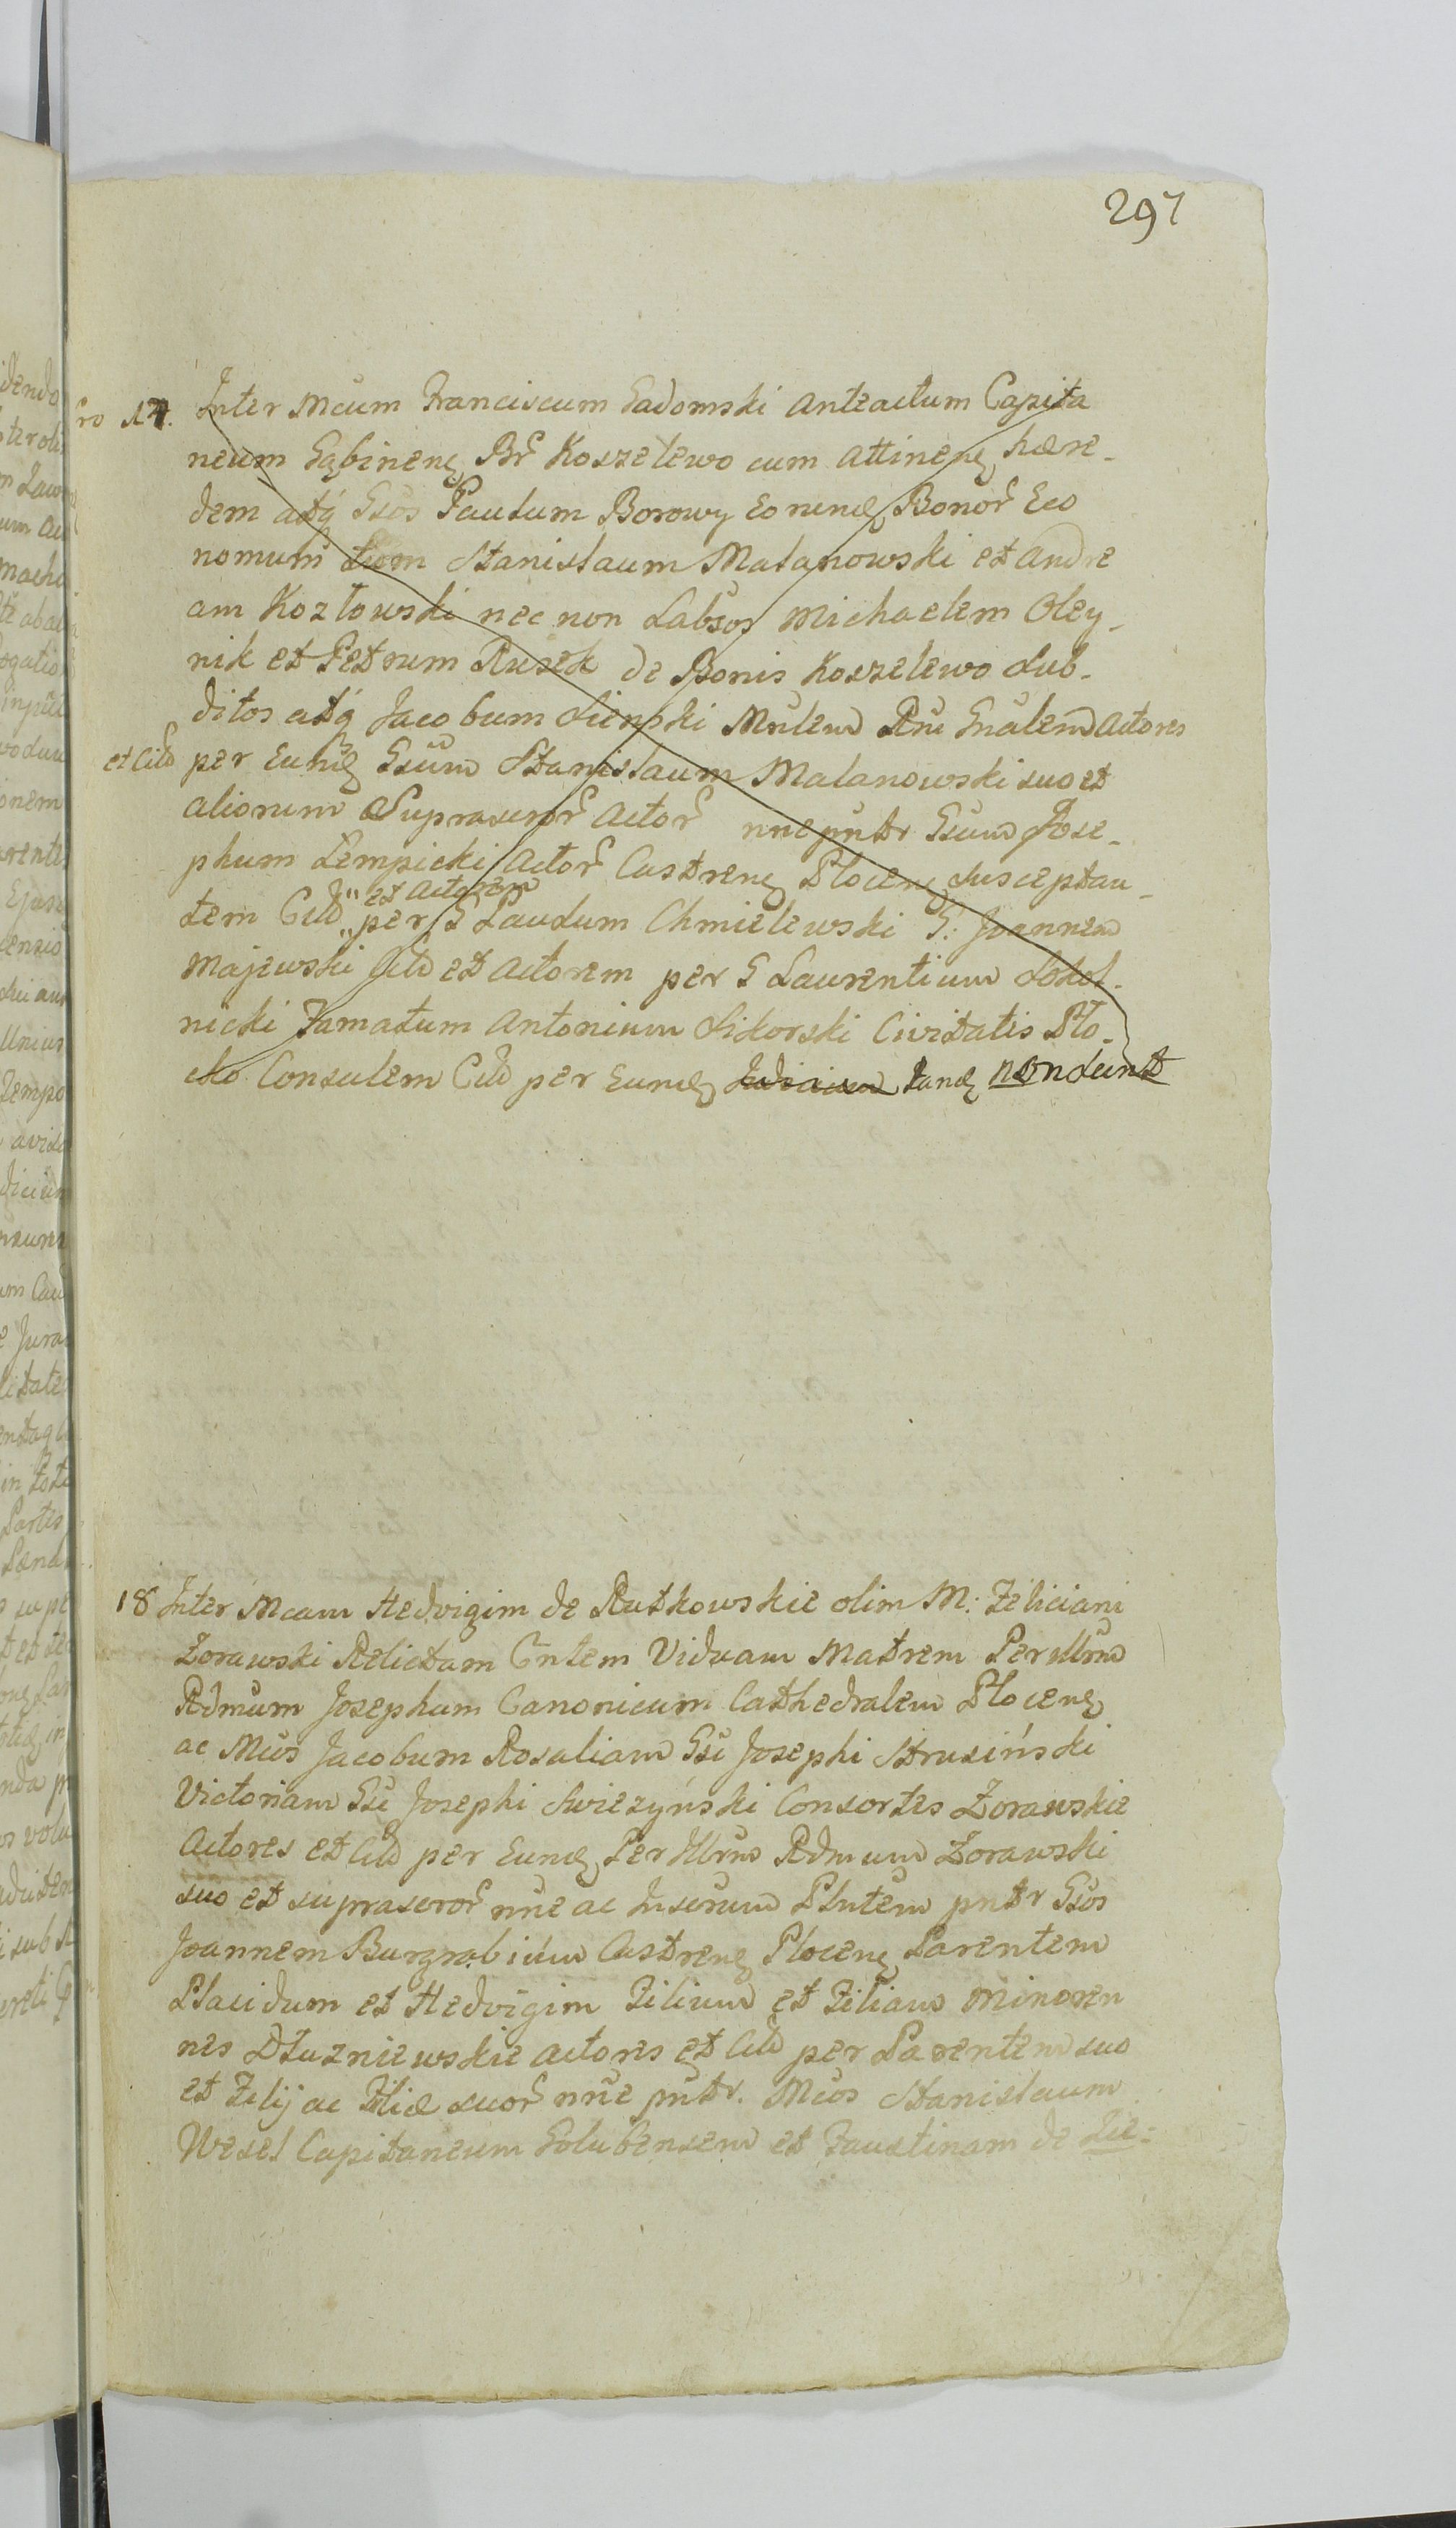 297
ro 17. Inter Mcum Franciscum Gadomski Anteactum Capita
neum Gąbinens Br̃ Koszelewo cum Attinens hære-
dem atq́ Gsos Paulum Borowy Eorund Bonor̃ Eco
nomum tum Stanislaum Malanowski et Andre
am Kozłowski nec non Labsos Michaelem Oley-
nik et Petrum Rusek de Bonis Koszelewo Sub-
ditos atq́ Jacobum Sienski Mnlem Rni Gnalem Actores
et Citõ per Eund Gsum Stanislaum Malanowski suo et
aliorum Suprascror̃ Actor̃ nne pntr Gsum Jose-
phum Lempicki Actor̃ Castrens Plocens Susceptan-
et Actorem
tem Citõ per G Paulum Chmielewski G: Joannem
Majewski Citõ et Actorem per G Laurentium Sokol-
nicki Famatum Antonium Sikorski Civitatis Pło-
cko Consulem Citõ per Eund Judicium Tand non sunt
18 Inter Mcam Hedvigim de Rutkowskie olim M: Feliciani
Zorawski Relictam Cntem Viduam Matrem Perillrm
Rdmum Josephum Canonicum Cathedralem Plocens
ac Mcos Jacobum Rosaliam Gsi Josephi Strusiński
Victoriam Gsi Josephi Swiezyński Consortes Zorawskie
Actores et Citõ per Eund Per Illrm Rdmum Zorawski
suo et suprascror̃ nne ac Inserum Plntem pntr Gsos
Joannem Burgrabium Castrens Plocens Parentem
Placidum et Hedvigim Filium et Filiam Minoren
nes Dłuzniewskie Actores et Citõ per Parentem suo
et Filij ac Filiæ suor̃ nne pntr. Mcos Stanislaum
Wessel Capitaneum Golubensem et Faustinam de Zie-